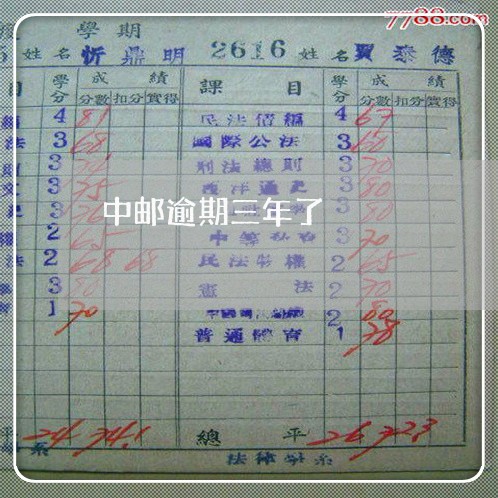 7788.com
學期
姓名 忻鼎明 2616 姓名 賈泰德
目 學分 成績 課目 學分 成績
分數 扣分 實得 分數 扣分 實得
4 81 民法債編 4 67
法 3 68 國際公法 3 60
3 刑法總則 3 70
3 75 西洋通史 3 80
3 3 80
中邮逾期三年了
2 65 3 70
法 2 68 68 民法物權 2 65
3 80 憲法 2 70
1 70 2 80
普通體育 1 78
平 24 74.1 總平 26 72.3
系 法律學系